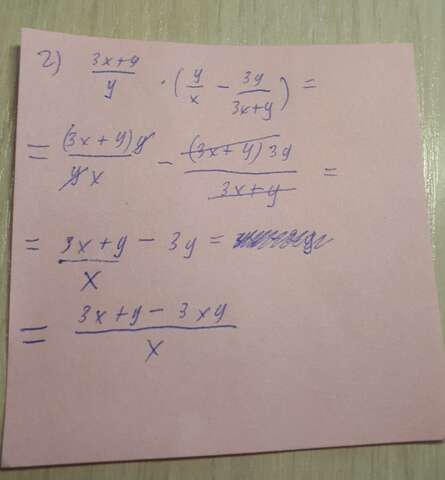 2) (3x+y)/y · (y/x − 3y/(3x+y)) =
= (3x+y)y/(yx) − (3x+y)3y/(3x+y) =
= (3x+y)/x − 3y =
= (3x+y−3xy)/x